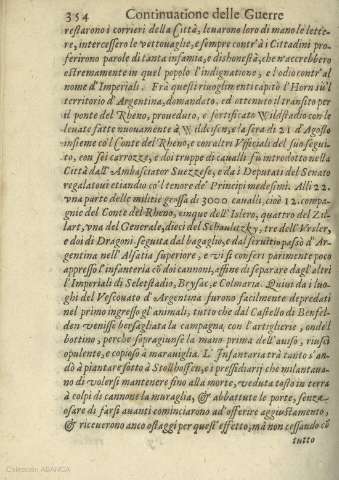 354 Continuatione delle Guerre
restarono i corrieri della Città, leuarono loro di mano le lette-
re, intercessero le vettouaglie, e sempre contr'à i Cittadini pro-
ferirono parole di tanta infamia, e dishonestà, che n'accrebbero
estremamente in quel popolo l'indignatione, e l'odio contr'al
nome d'Imperiali. Frà questi ruuoglimenti capitò l'Horn sù'l
territorio d'Argentina, domandato, ed ottenuto il transito per
il ponte del Rheno, proueduto, e fortificato Wildstadio con le
leuate fatte nuouamente à Wildesen, e la sera di 21 d'Agosto
insieme co'l Conte del Rheno, e con altri Vfficiali del suo segui-
to, con sei carrozze, e doi truppe di caualli fù introdotto nella
Città dall'Ambasciator Suezzese, e da i Deputati del Senato
regalato ui etiandio co'l tenore de' Principi medesimi. Alli 22.
vna parte delle militie grossa di 3000 caualli, cioè 12. compa-
gnie del Conte del Rheno, cinque dell'Islero, quattro del Zil-
lart, vna del Generale, dieci del Schaulitzky, tre dell'Vrsler,
e doi di Dragoni seguita dal bagaglio, e dal seruitio passò d'Ar-
gentina nell'Alsatia superiore, e vi si conferì parimente poco
appresso l'infanteria cō doi cannoni, affine di separare dagl'altri
l'Imperiali di Selestadio, Brysac, e Colmaria. Quiui da i luo-
ghi del Vescouato d'Argentina furono facilmente depredati
nel primo ingresso gl'animali, tutto che dal Castello di Benfel-
den venisse bersagliata la campagna con l'artiglierie, onde'l
bottino, perche sopragiunse la mano prima dell'auiso, riuscì
opulente, e copioso à marauiglia. L'Infantaria trà tanto s'an-
dò à piantare sotto à Stollhoffen, e i pressidiarij che millantaua-
no di volersi mantenere fino alla morte, veduta tosto in terra
à colpi di cannone la muraglia, & abbattute le porte, senz'
osare di farsi auanti cominciarono ad'offerire aggiustamento,
& riceuerono anco ostaggi per quest'effetto, mà non cessando cō
tutto
Colección ABANCA